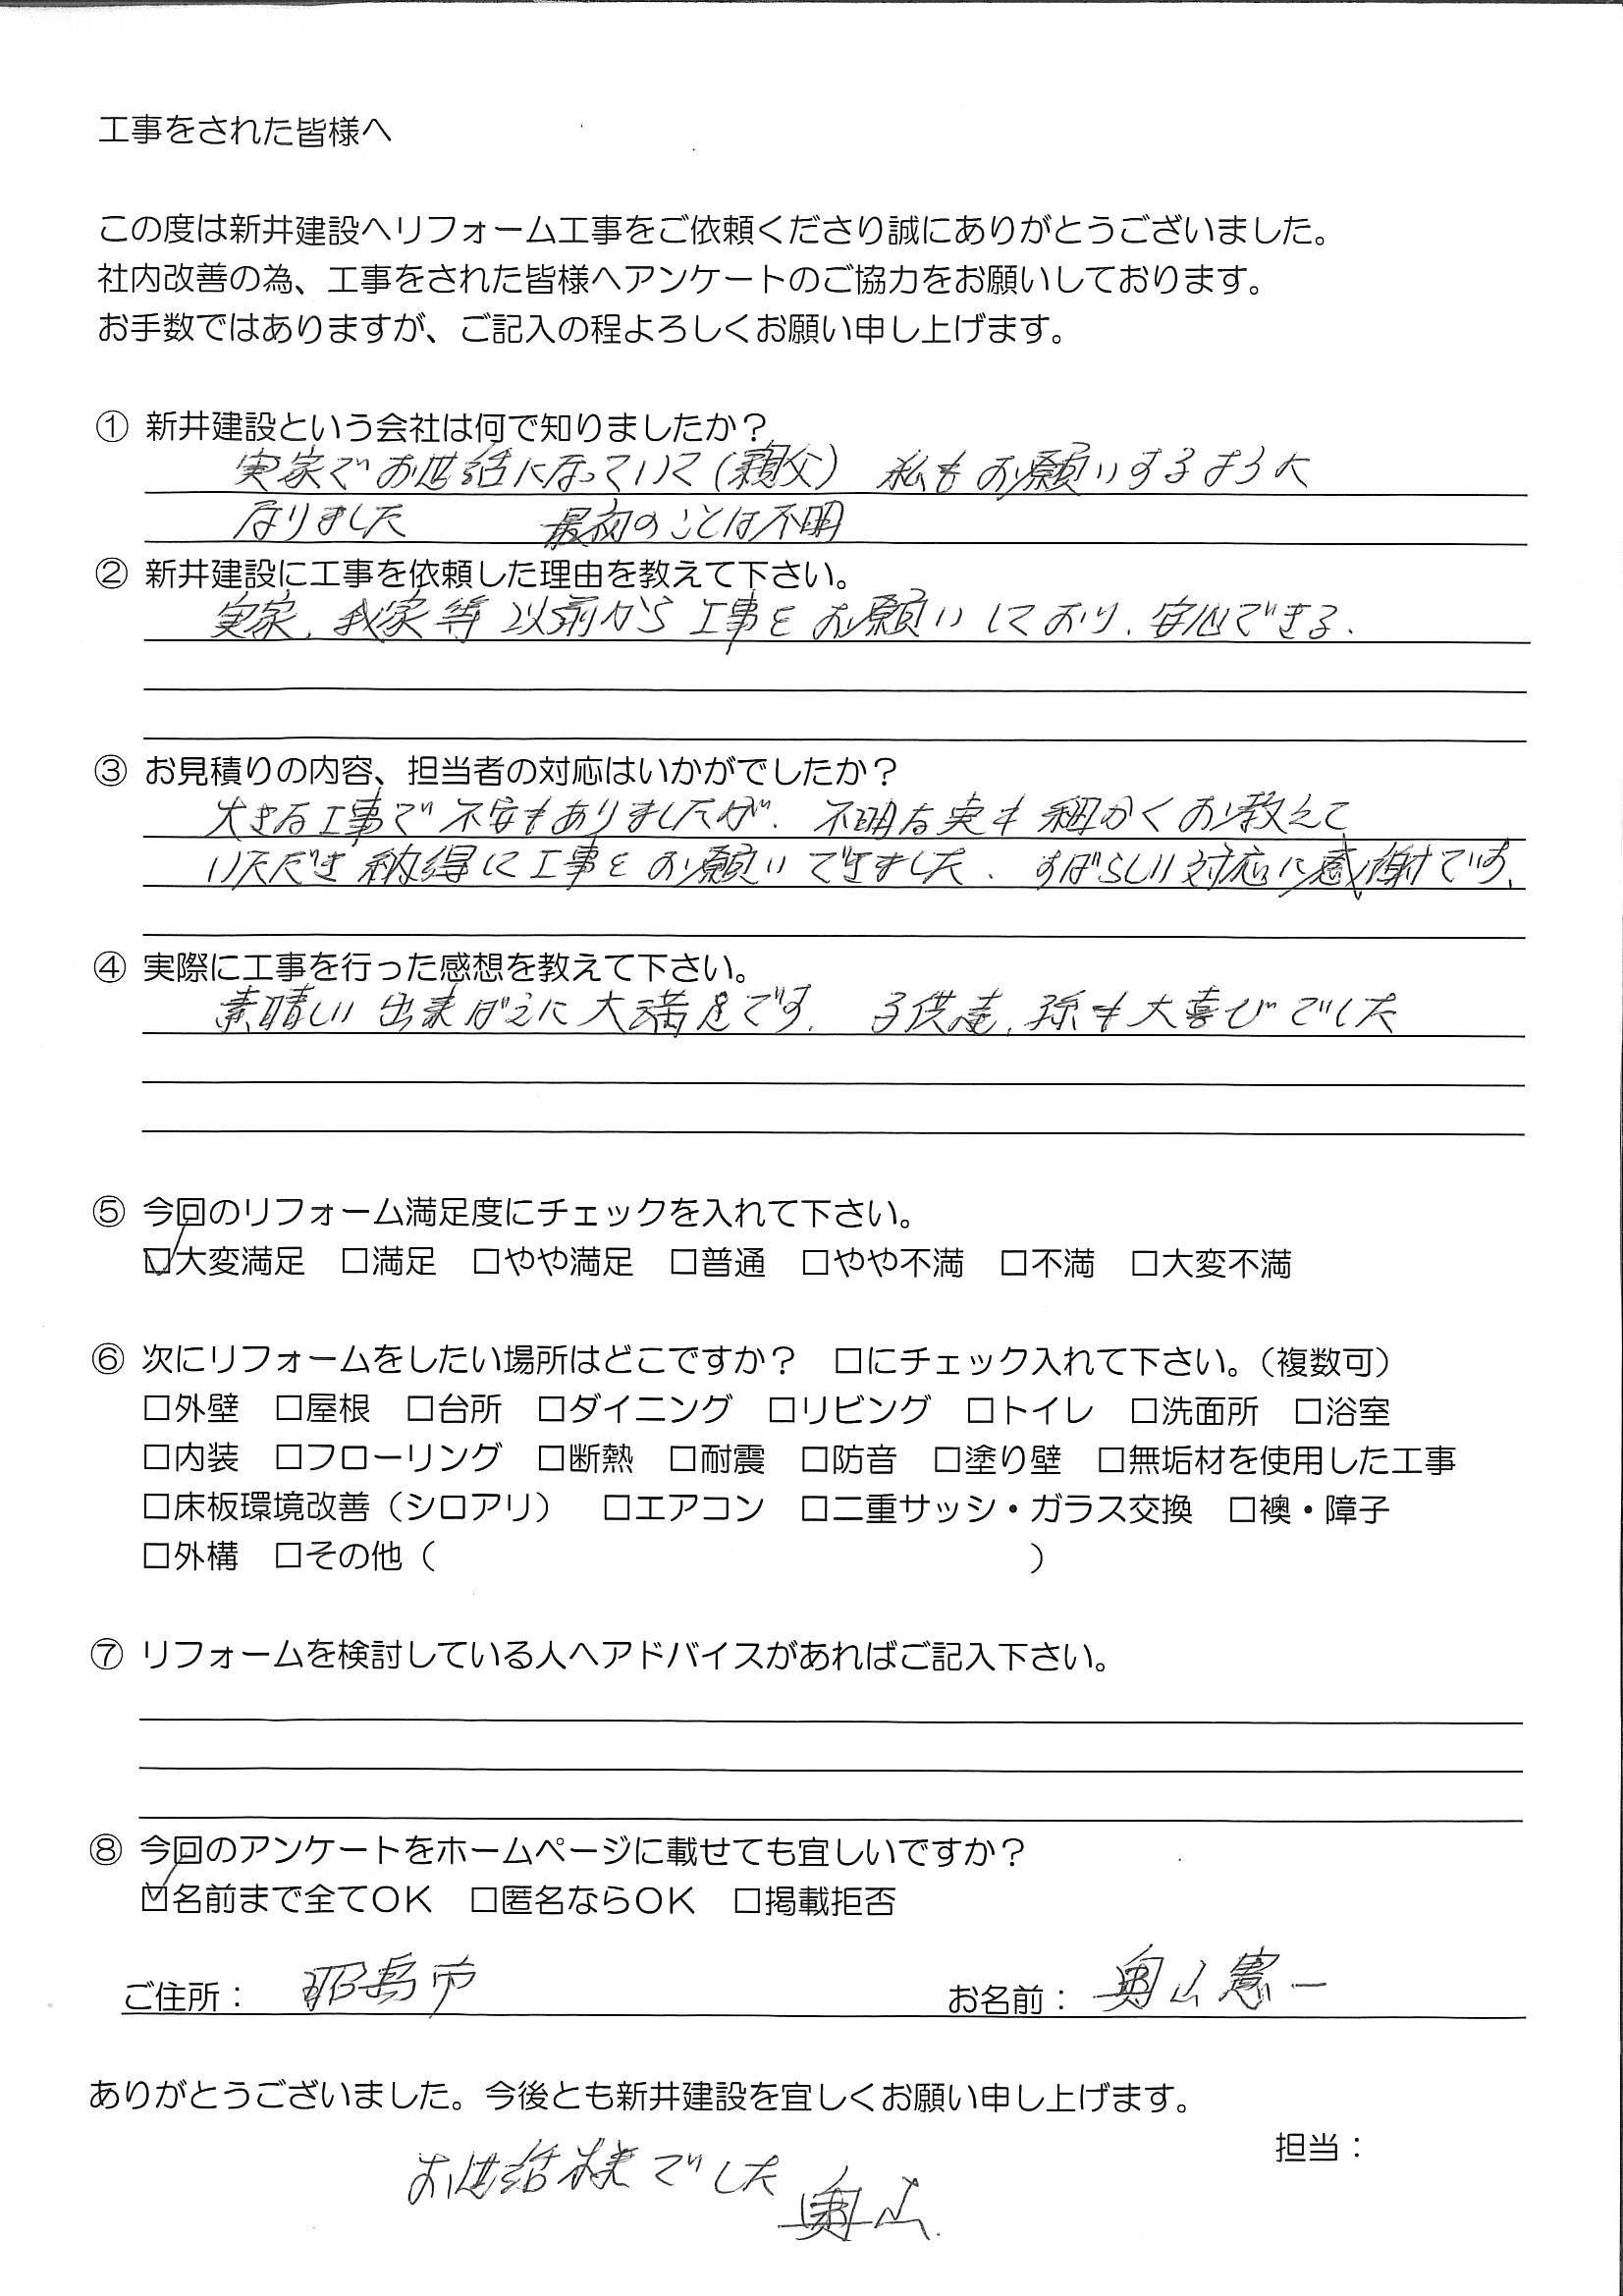 工事をされた皆様へ
この度は新井建設へリフォーム工事をご依頼くださり誠にありがとうございました。
社内改善の為、工事をされた皆様へアンケートのご協力をお願いしております。
お手数ではありますが、ご記入の程よろしくお願い申し上げます。
① 新井建設という会社は何で知りましたか？
実家でお世話になっていて（親父） 私もお願いするように
なりました 最初のことは不明
② 新井建設に工事を依頼した理由を教えて下さい。
実家、我家等 以前から工事をお願いしており、安心できる.
③ お見積りの内容、担当者の対応はいかがでしたか？
大きな工事で不安もありましたが、不明な実も細かくお教えて
いただき納得に工事をお願いできました. すばらしい対応に感謝です.
④ 実際に工事を行った感想を教えて下さい。
素晴しい出来ばえに大満足です. 子供達、孫も大喜びでした
⑤ 今回のリフォーム満足度にチェックを入れて下さい。
☑大変満足 □満足 □やや満足 □普通 □やや不満 □不満 □大変不満
⑥ 次にリフォームをしたい場所はどこですか？ □にチェック入れて下さい。（複数可）
□外壁 □屋根 □台所 □ダイニング □リビング □トイレ □洗面所 □浴室
□内装 □フローリング □断熱 □耐震 □防音 □塗り壁 □無垢材を使用した工事
□床板環境改善（シロアリ） □エアコン □二重サッシ・ガラス交換 □襖・障子
□外構 □その他（ ）
⑦ リフォームを検討している人へアドバイスがあればご記入下さい。
⑧ 今回のアンケートをホームページに載せても宜しいですか？
☑名前まで全てOK □匿名ならOK □掲載拒否
ご住所： 昭島市 お名前： 奥山憲一
ありがとうございました。今後とも新井建設を宜しくお願い申し上げます。
担当：
お世話様でした 奥山.